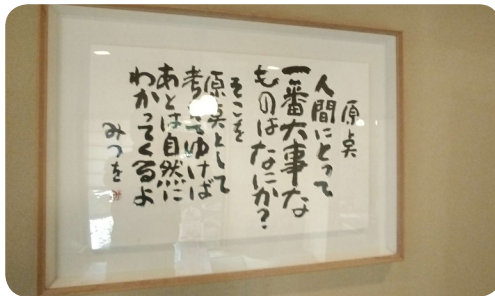 原点
人間にとって
一番大事な
ものはなにか？
そこを
原点として
考えてゆけば
あとは自然に
わかってくるよ
みつを